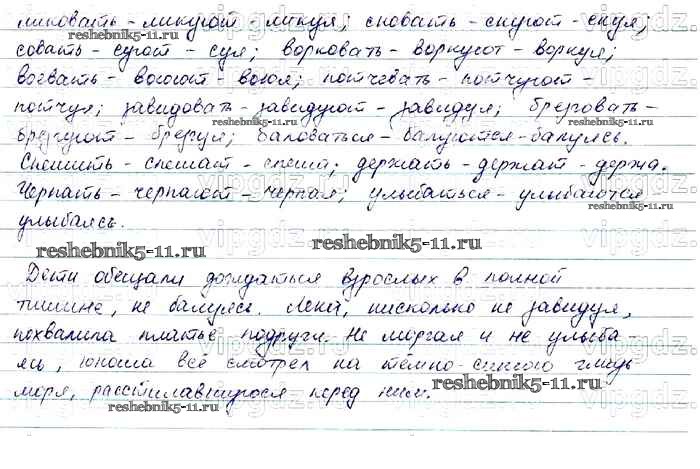 ликовать - ликуют - ликуя; сновать - снуют - снуя;
совать - суют - суя; ворковать - воркуют - воркуя;
воевать - воюют - воюя; потчевать - потчуют -
потчуя; завидовать - завидуют - завидуя; брезговать -
брезгуют - брезгуя; баловаться - балуются - балуясь.
Спешить - спешат - спеша; держать - держат - держа.
Черпать - черпают - черпая; улыбаться - улыбаются
улыбаясь.
reshebnik5-11.ru
Дети обещали дожидаться взрослых в полной
тишине, не балуясь. Лена, нисколько не завидуя,
похвалила платье подруги. Не моргая и не улыба-
ясь, юноша всё смотрел на тёмно-синюю гладь
моря, расстилавшуюся перед ним.
reshebnik5-11.ru
vipgdz.com